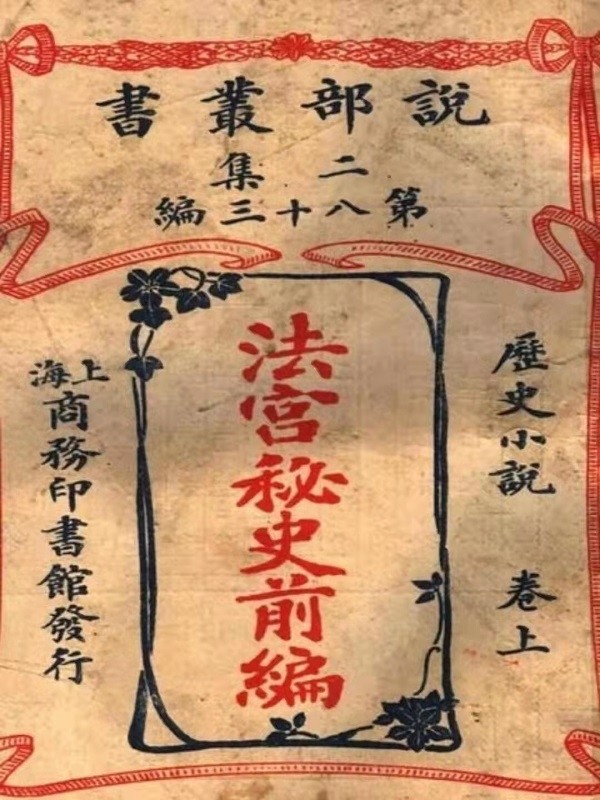 說部叢書
二集
第八十三編
歷史小說 卷上
法宮秘史前編
上海
商務印書館發行